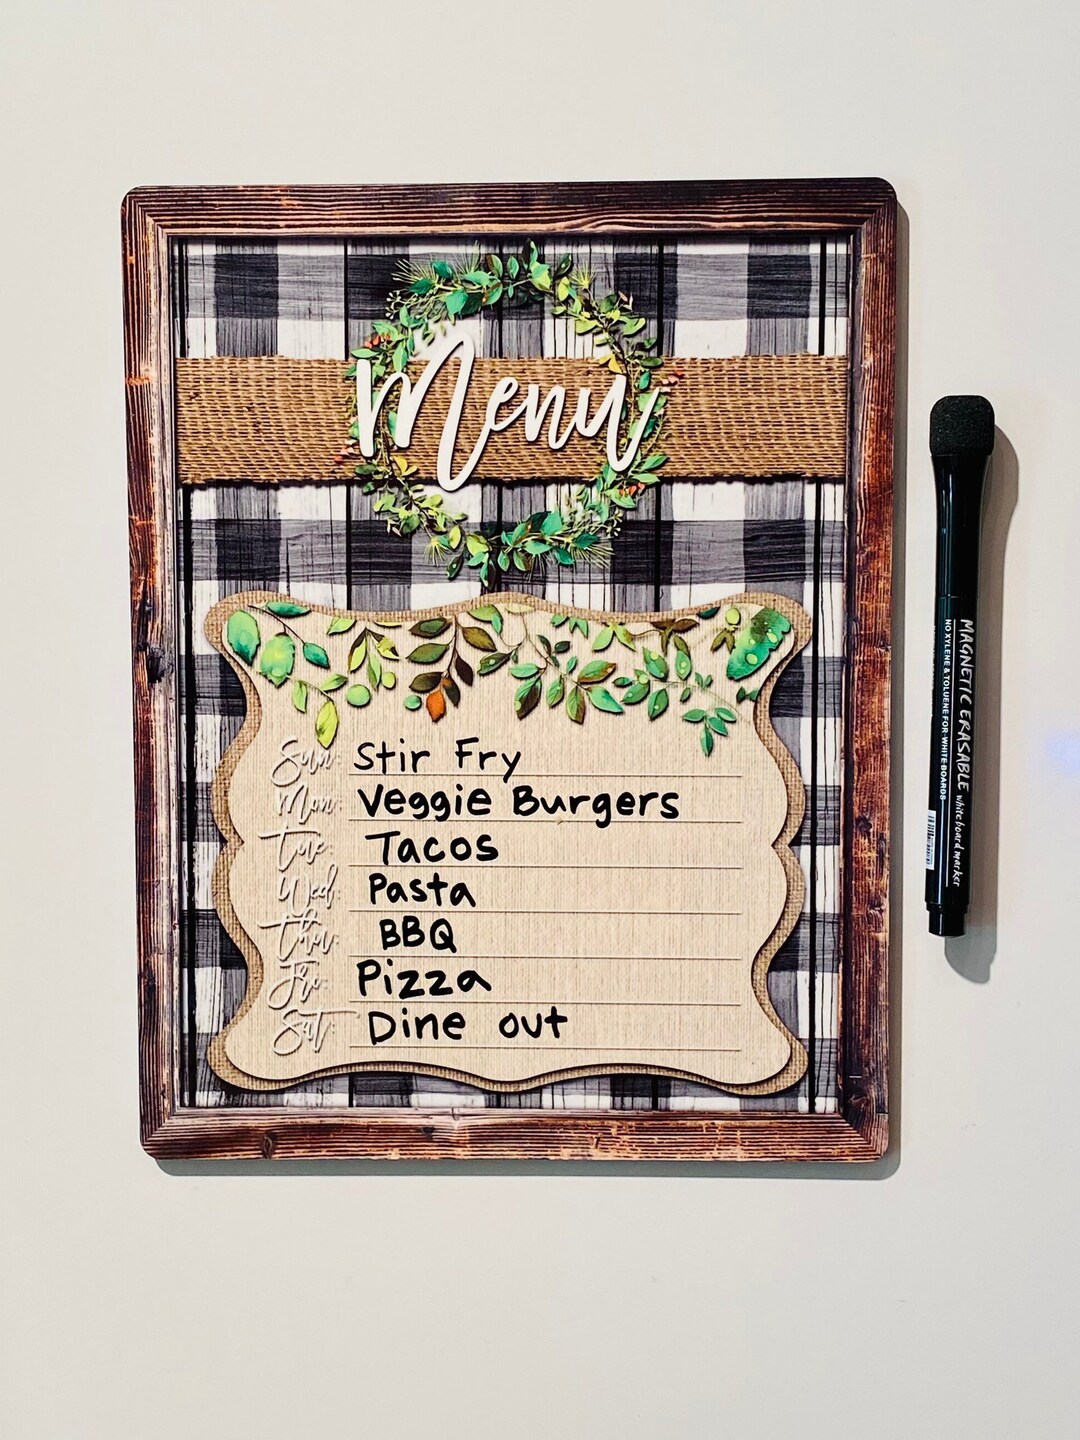 Menu
Sun: Stir Fry
Mon: Veggie Burgers
Tue: Tacos
Wed: Pasta
Thu: BBQ
Fri: Pizza
Sat: Dine out
MAGNETIC ERASABLE whiteboard marker
NO XYLENE & TOLUENE FOR WHITE BOARDS